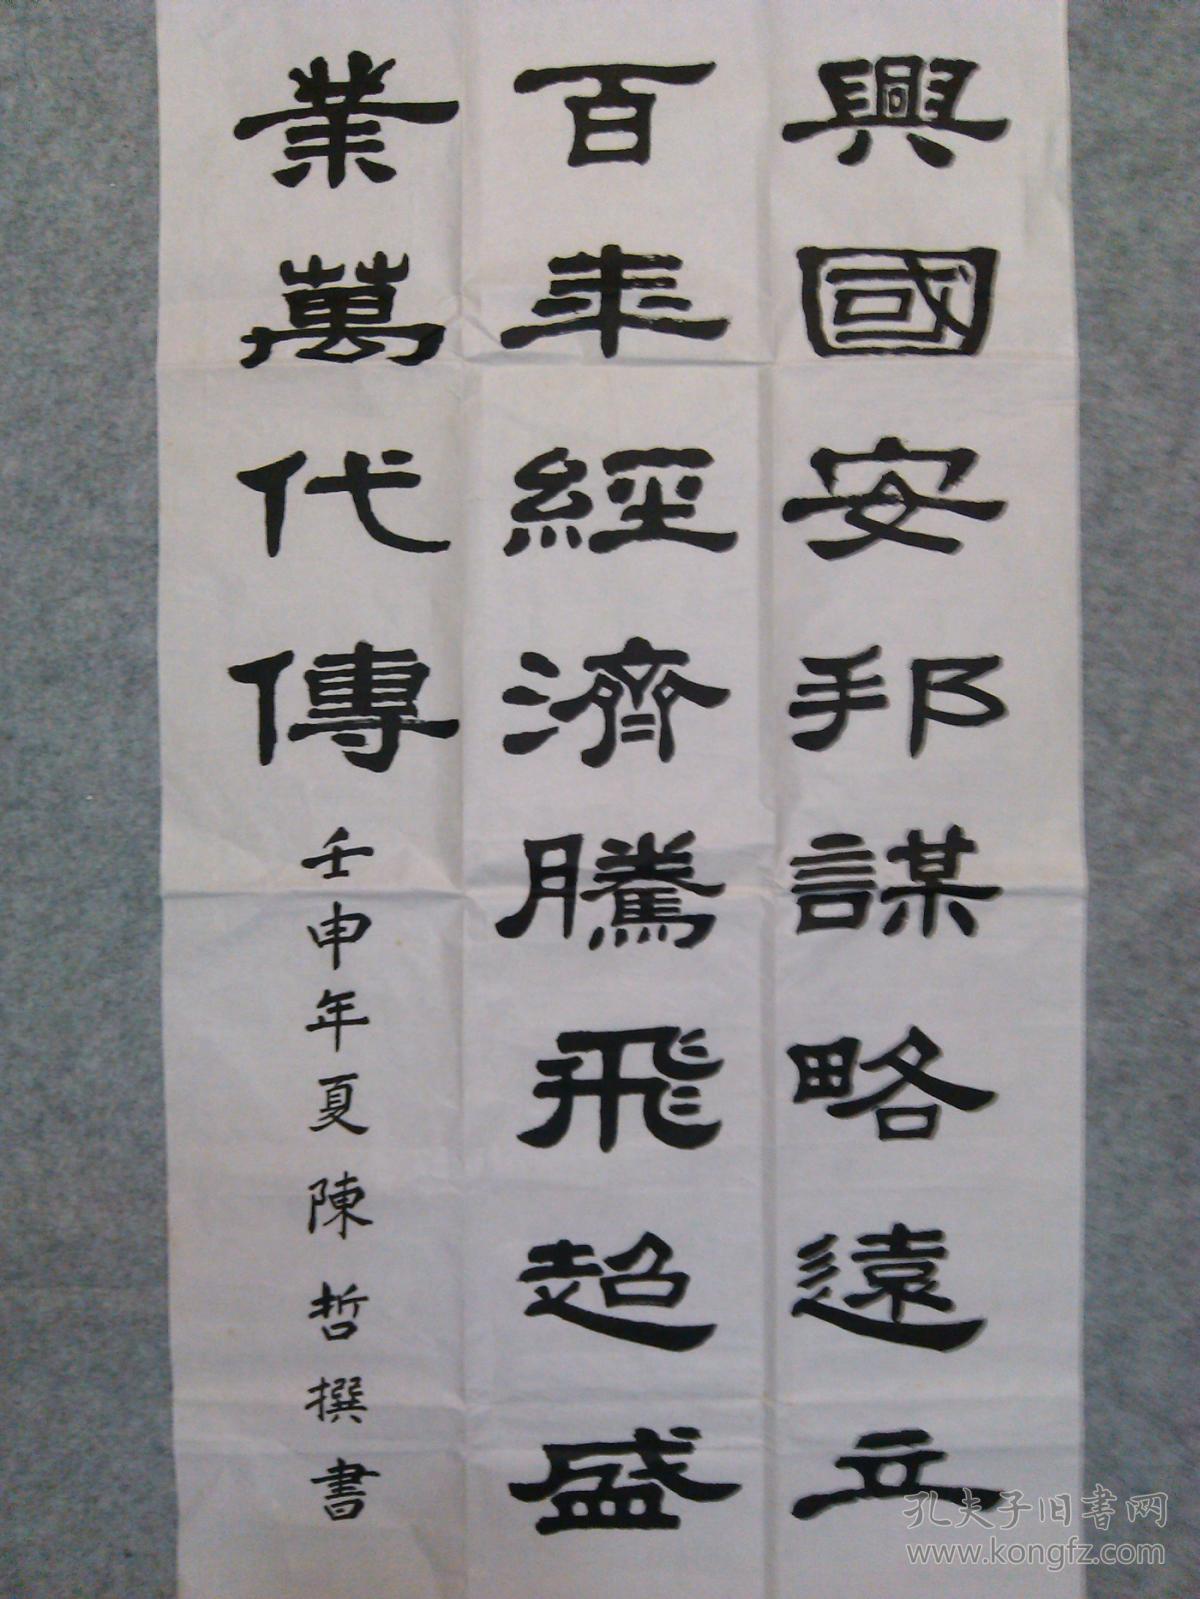 興國安邦謀略遠立
百年經濟騰飛超盛
業萬代傳
壬申年夏陳哲撰書
孔夫子旧書网
www.kongfz.com